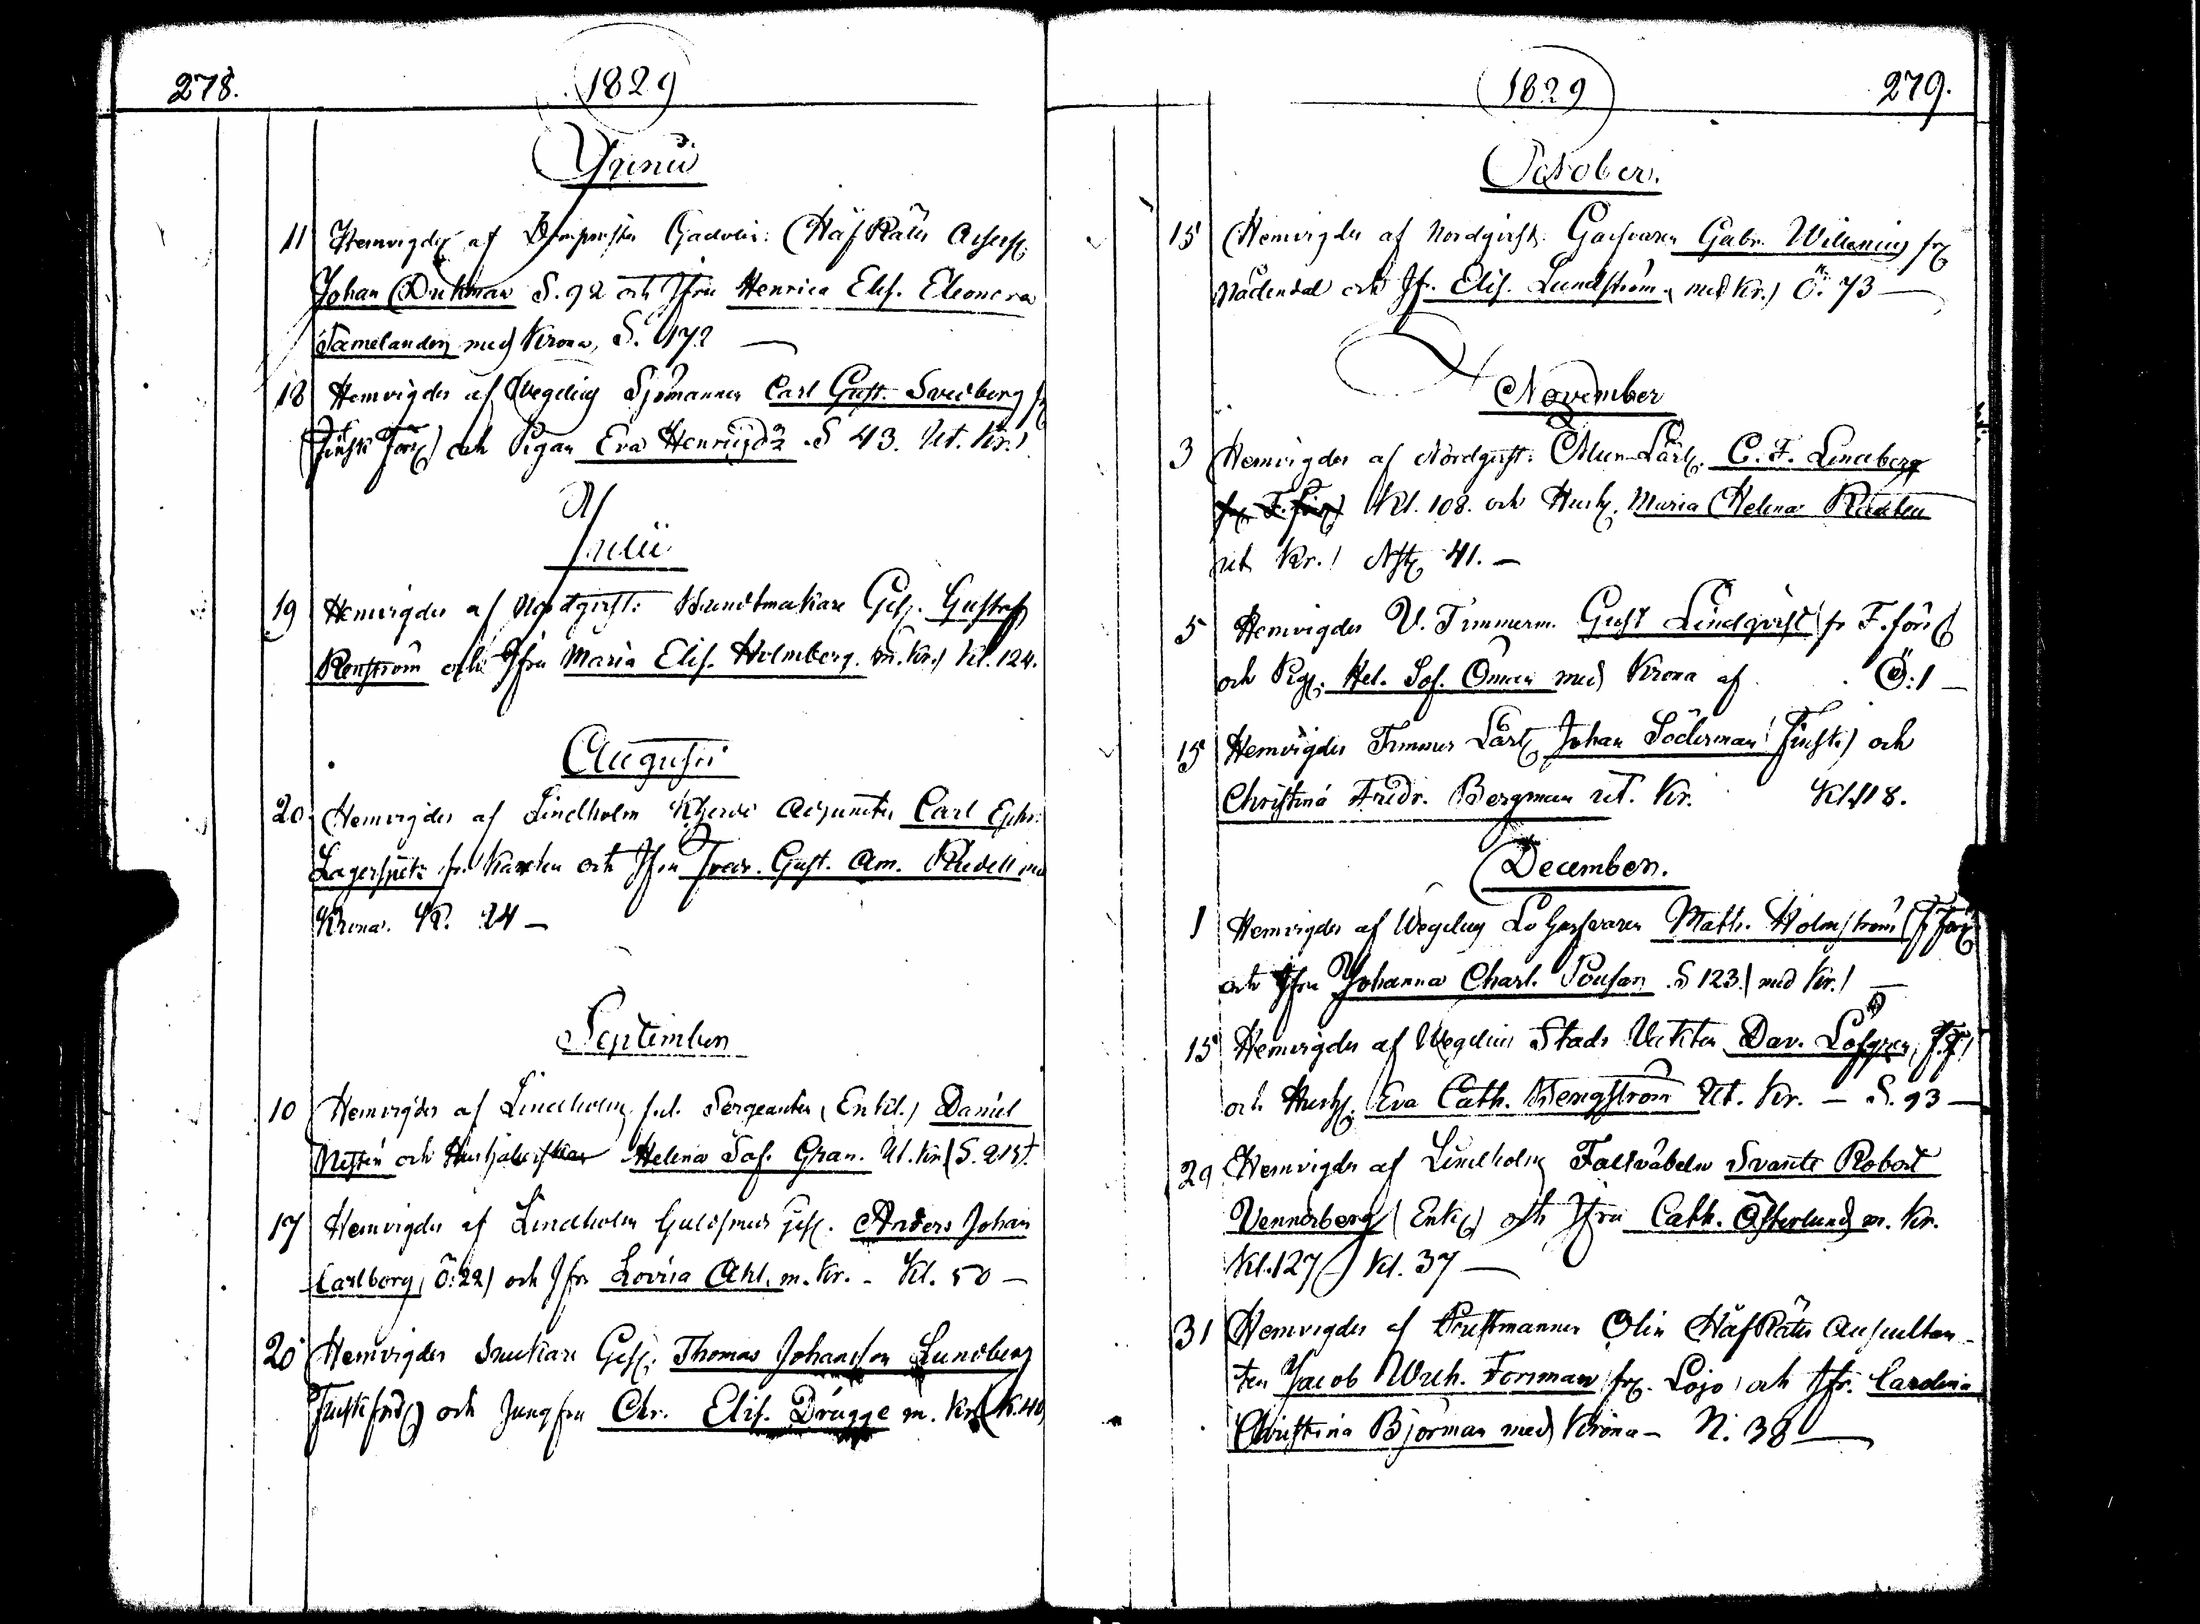 278.
1829
Junii
11 Hemvigdes af Domprosten Gadolin: HåfRätts Assess.
Johan Dickman S. 92 och Jfru Henrica Elis. Eleonora
Tamelander med Krona, S. 172 —
18 Hemvigdes af Wegelius Sjömannen Carl Gust. Sveiberg fr
Finsk förs) och Pigan Eva Henricsdr S 43. Ut. Kr.)
Julii
19 Hemvigdes af Nordqvist: Buntmakare Ges. Gustaf
Renström och Jfru Maria Elis. Holmberg. m. Kr.) Kl. 124.
Augusti
20 Hemvigdes af Lindholm Adjuncten Carl Ephr.
Lagerspetz fr. och Jfru Fredr. Gust. Am. Ridell med
Krona. Kl. 24 —
September
10 Hemvigdes af Lindholm Sergeanten (Enkl.) Daniel
och Hushålerskan Helena Sof. Gran. Ut. Kr. S. 215.
17 Hemvigdes af Lindholm Guldsmeds ges. Anders Johan
Carlborg, Ö: 22) och Jfr Lovisa Ahl, m. Kr. - Kl. 50 —
20 Hemvigdes Snickare Ges. Thomas Johansson Lundberg
Finsk förs) och Jungfru Chr. Elis. Drugge m. Kr. K. 40
1829
279.
October.
15 Hemvigdes af Nordqvist. Garfvaren Gabr. Wilenius fr
Nådendal och Jfr. Elis. Lundström, med Kr.) Ö. 73 —
November
3 Hemvigdes af Nordqvist: Mur Lärl. C. F. Lindberg
fr. F. förs) Kl. 108. och Hush. Maria Helena
ut Kr.) 41. —
5 Hemvigdes U. Timmerm. Gust Lindqvist fr F. förs
och Pig. Hel. Sof. Öman med Krona af Ö: 1 —
15 Hemvigdes Timmer Lärl. Johan Söderman Finsk) och
Christina Fredr. Bergman ut. Kr. Kl. 118.
December.
1 Hemvigdes af Wegelius Lo Garfvaren Math. Holmström (F förs
och Jfru Johanna Charl. S 123. med Kr.) —
15 Hemvigdes af Wegelius Stads Vakten Dav. Löfgren, F. F.)
och Hush. Eva Cath. Wengström Ut. Kr. — S. 93 —
29 Hemvigdes af Lindholm Faltväbeln Svante Robert
Vennerberg (Enkl) och Jfru Cath. Österlund m. Kr.
Kl. 127 Kl. 37 —
31 Hemvigdes af Prostmannen Olin HåfRätts Auscultan-
ten Jacob Wilh. Forsman fr. Lojo och Jfr. Carolina
Christina Björman med Krona — N. 38 —